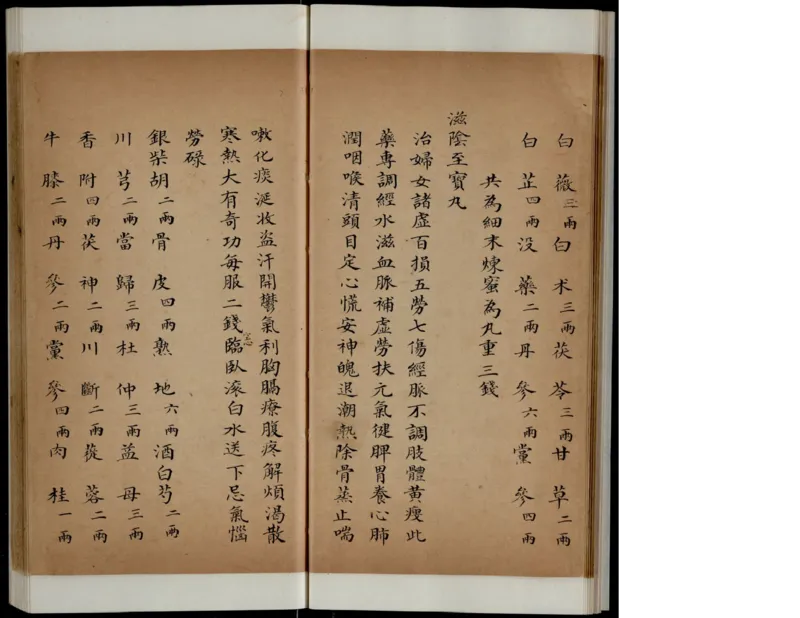 白薇三兩白朮三兩茯苓三兩甘草二兩
白芷四兩没藥二兩丹參六兩黨參四兩
共為細末煉蜜為丸重三錢
滋陰至寶丸
治婦女諸虛百損五勞七傷經脈不調肢體黄瘦此
藥專調經水滋血脈補虛勞扶元氣健脾胃養心肺
潤咽喉清頭目定心慌安神魄退潮熱除骨蒸止喘
嗽化痰涎收盗汗開鬱氣利胸膈療腹疼解煩渴散
寒熱大有奇功每服二錢臨臥滾白水送下忌氣惱
勞碌
銀柴胡二兩骨皮四兩熟地六兩酒白芍二兩
川芎二兩當歸三兩杜仲三兩益母三兩
香附四兩茯神二兩川斷二兩蓯蓉二兩
牛膝二兩丹參二兩黨參四兩肉桂一兩